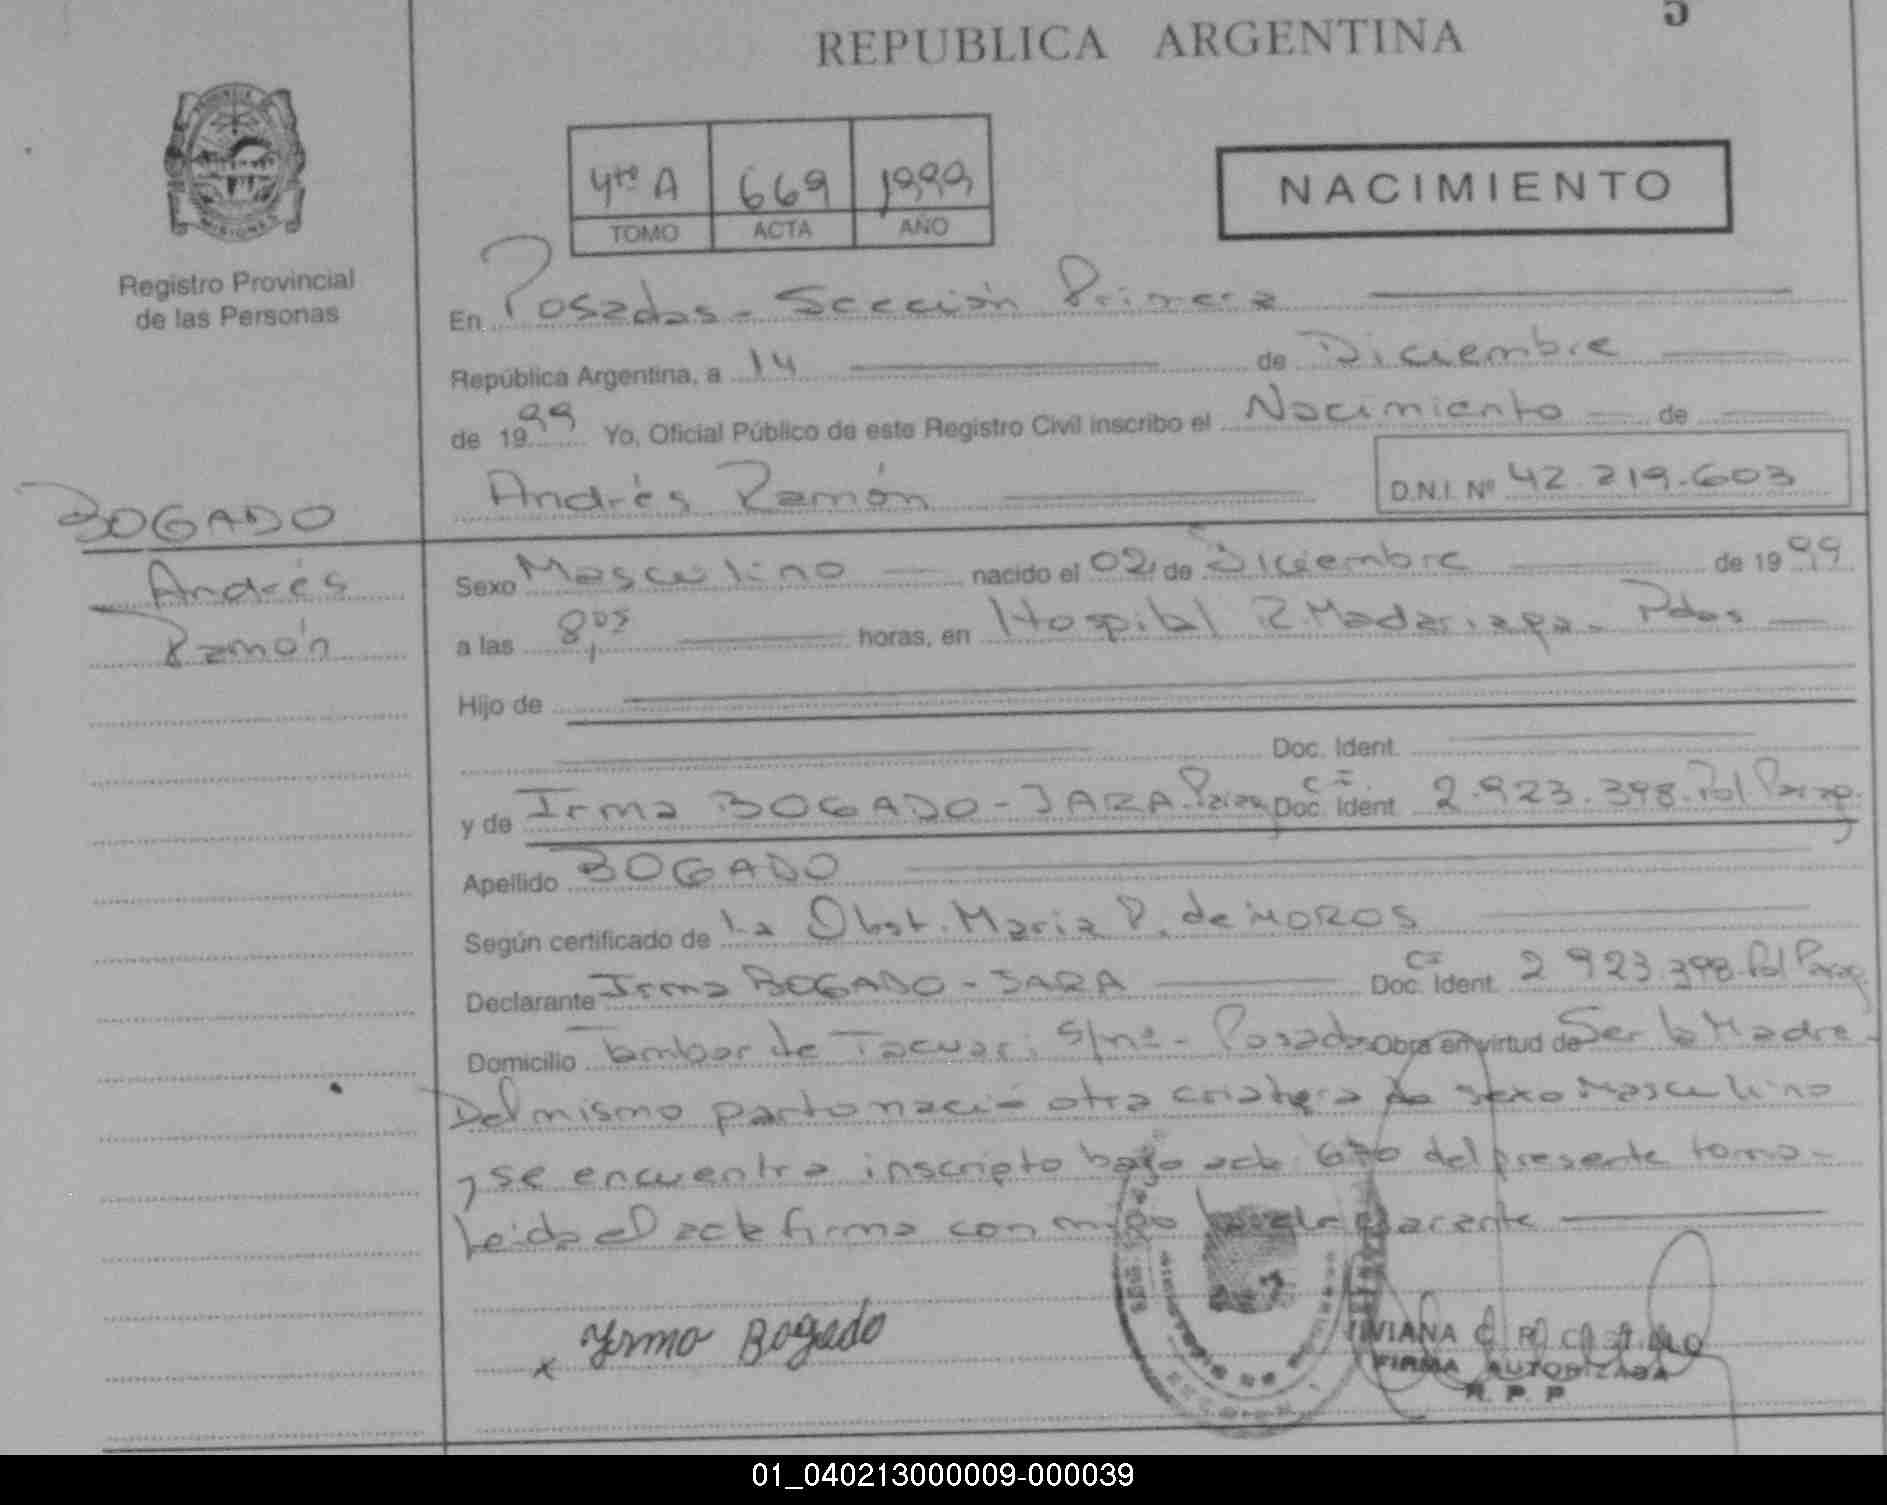 5
REPUBLICA ARGENTINA
PROVINCIA DE
MISIONES
Registro Provincial
de las Personas
4to A 669 1999
TOMO ACTA AÑO
NACIMIENTO
En Posadas - Sección Primera
República Argentina, a 14 de Diciembre
de 1999 Yo, Oficial Público de este Registro Civil inscribo el Nacimiento de
Andrés Ramón
D.N.I. Nº 42.219.603
BOGADO
Andrés
Ramón
Sexo Masculino nacido el 02 de Diciembre de 1999
a las 8,05 horas, en Hospital R. Madariaga - Pdas
Hijo de
Doc. Ident.
y de Irma BOGADO - JARA. Parag Doc. Ident. CI 2.923.398. Pol Parag.
Apellido BOGADO
Según certificado de La Obst. Maria P. de MOROS
Declarante Irma BOGADO - JARA Doc. Ident. CI 2.923.398. Pol Parag
Domicilio Tambor de Tacuari S/nº - Posadas Obra en virtud de Ser la Madre -
Del mismo parto nació otra criatura de sexo Masculino
y se encuentra inscripto bajo acta 670 del presente tomo -
Leida el acta firma con migo la declarante
x Yrma Bogado
VIVIANA C. R. CASTILLO
FIRMA AUTORIZADA
R. P. P
01_040213000009-000039